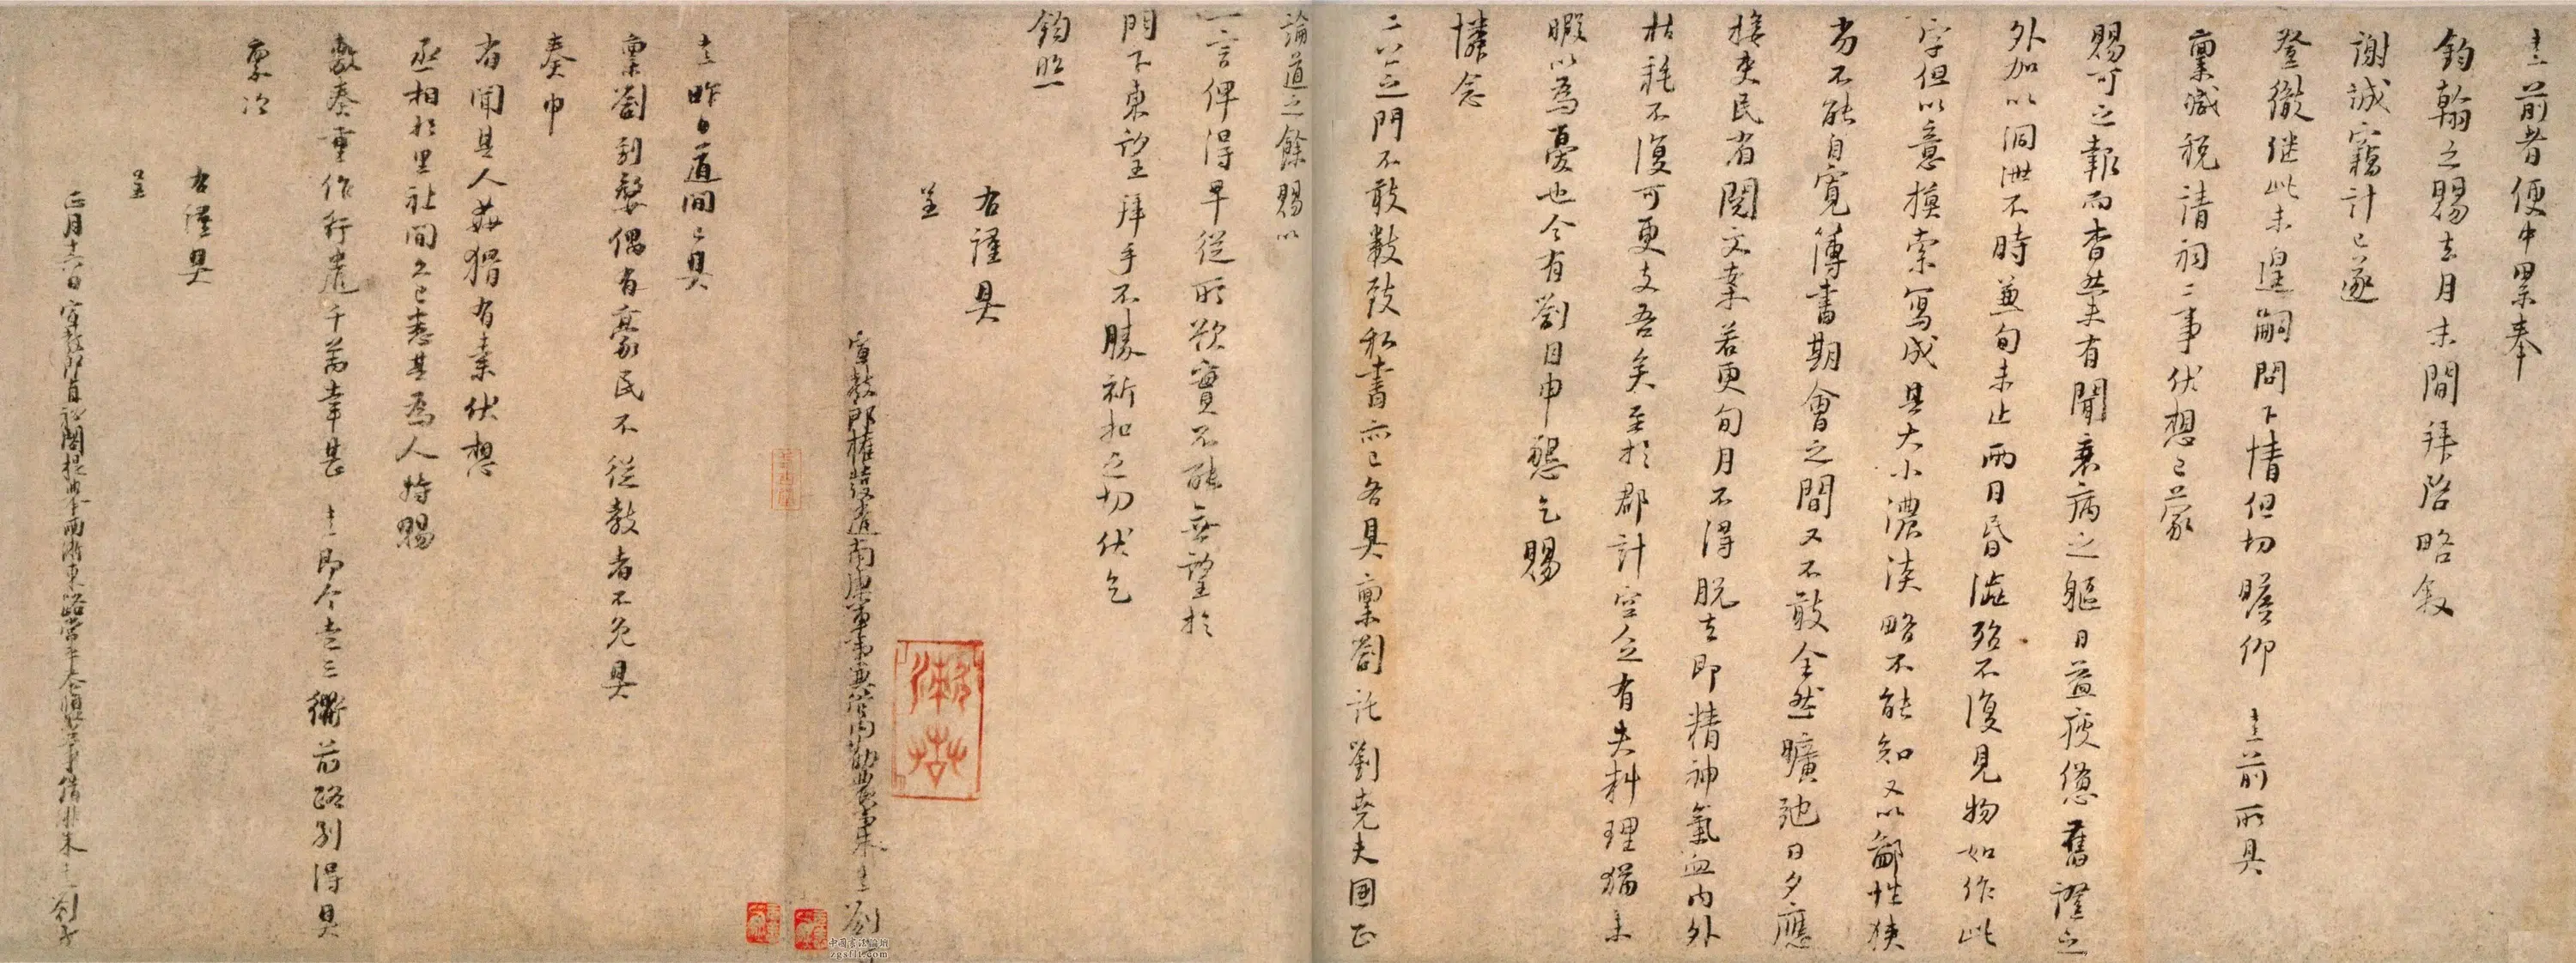 熹前者便中累奉
鈞翰之賜去月末間拜啓略叙
謝誠竊計已遂
登徹继此未遑嗣問下情但切瞻仰 熹前所具
稟减税请祠二事伏想已蒙
賜可之報而杳然未有聞衰病之軀日益疲憊舊證之
外加以洞泄不時兼旬未止兩目昏澁殆不復見物如作此
字但以意摸索寫成其大小濃淡略不能知又以鄙性狭
劣不能自寛簿書期會之間又不敢全然曠弛日夕應
接吏民省閲文案若更旬月不得脱去即精神氣血内外
枯耗不復可更支吾矣至於郡計空乏有失料理猶未
暇以為憂也今有劉目申懇乞賜
憐念
二公之門不敢數致私書亦已各具稟劄託劉堯夫國正
論道之餘賜以
一言俾得早從所欲實不能無望於
門下東望拜手不勝祈扣之切伏乞
鈞照
右謹具
呈
宣教郎權發遣南康軍事兼管内勸農事朱熹劄子
熹昨日道間已具
稟劄到婺偶有豪民不從教者不免具
奏申
省聞其人奸猾有素伏想
丞相於里社間久已悉其為人特賜
敷奏重作行遣千萬幸甚 熹即今走三衢前路别得具
稟次
右謹具
呈
正月 日宣教郎直祕閣提舉兩浙東路常平茶鹽公事借緋朱熹劄子
中國書法論壇
zgsflt.com